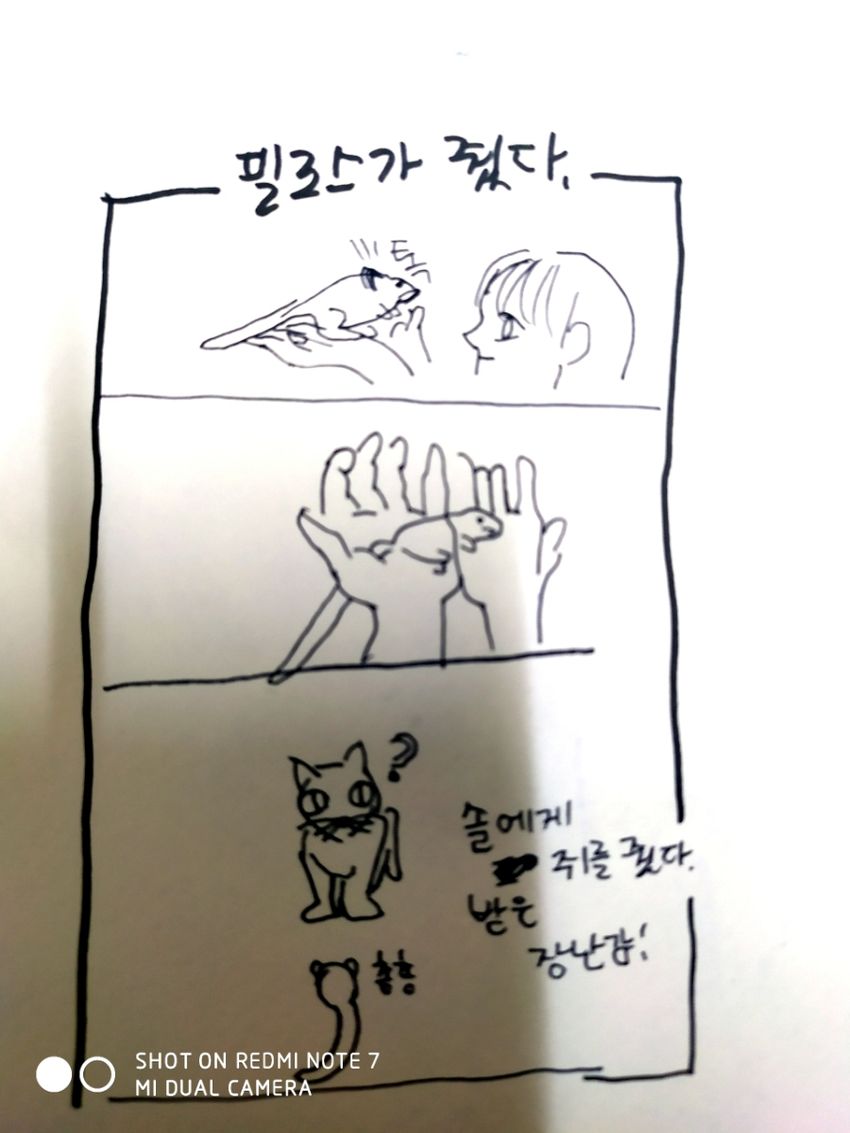 필로스가 줬다.
톡
?
솔에게
쥐를 줬다.
받은
장난감!
총총
SHOT ON REDMI NOTE 7
MI DUAL CAMERA